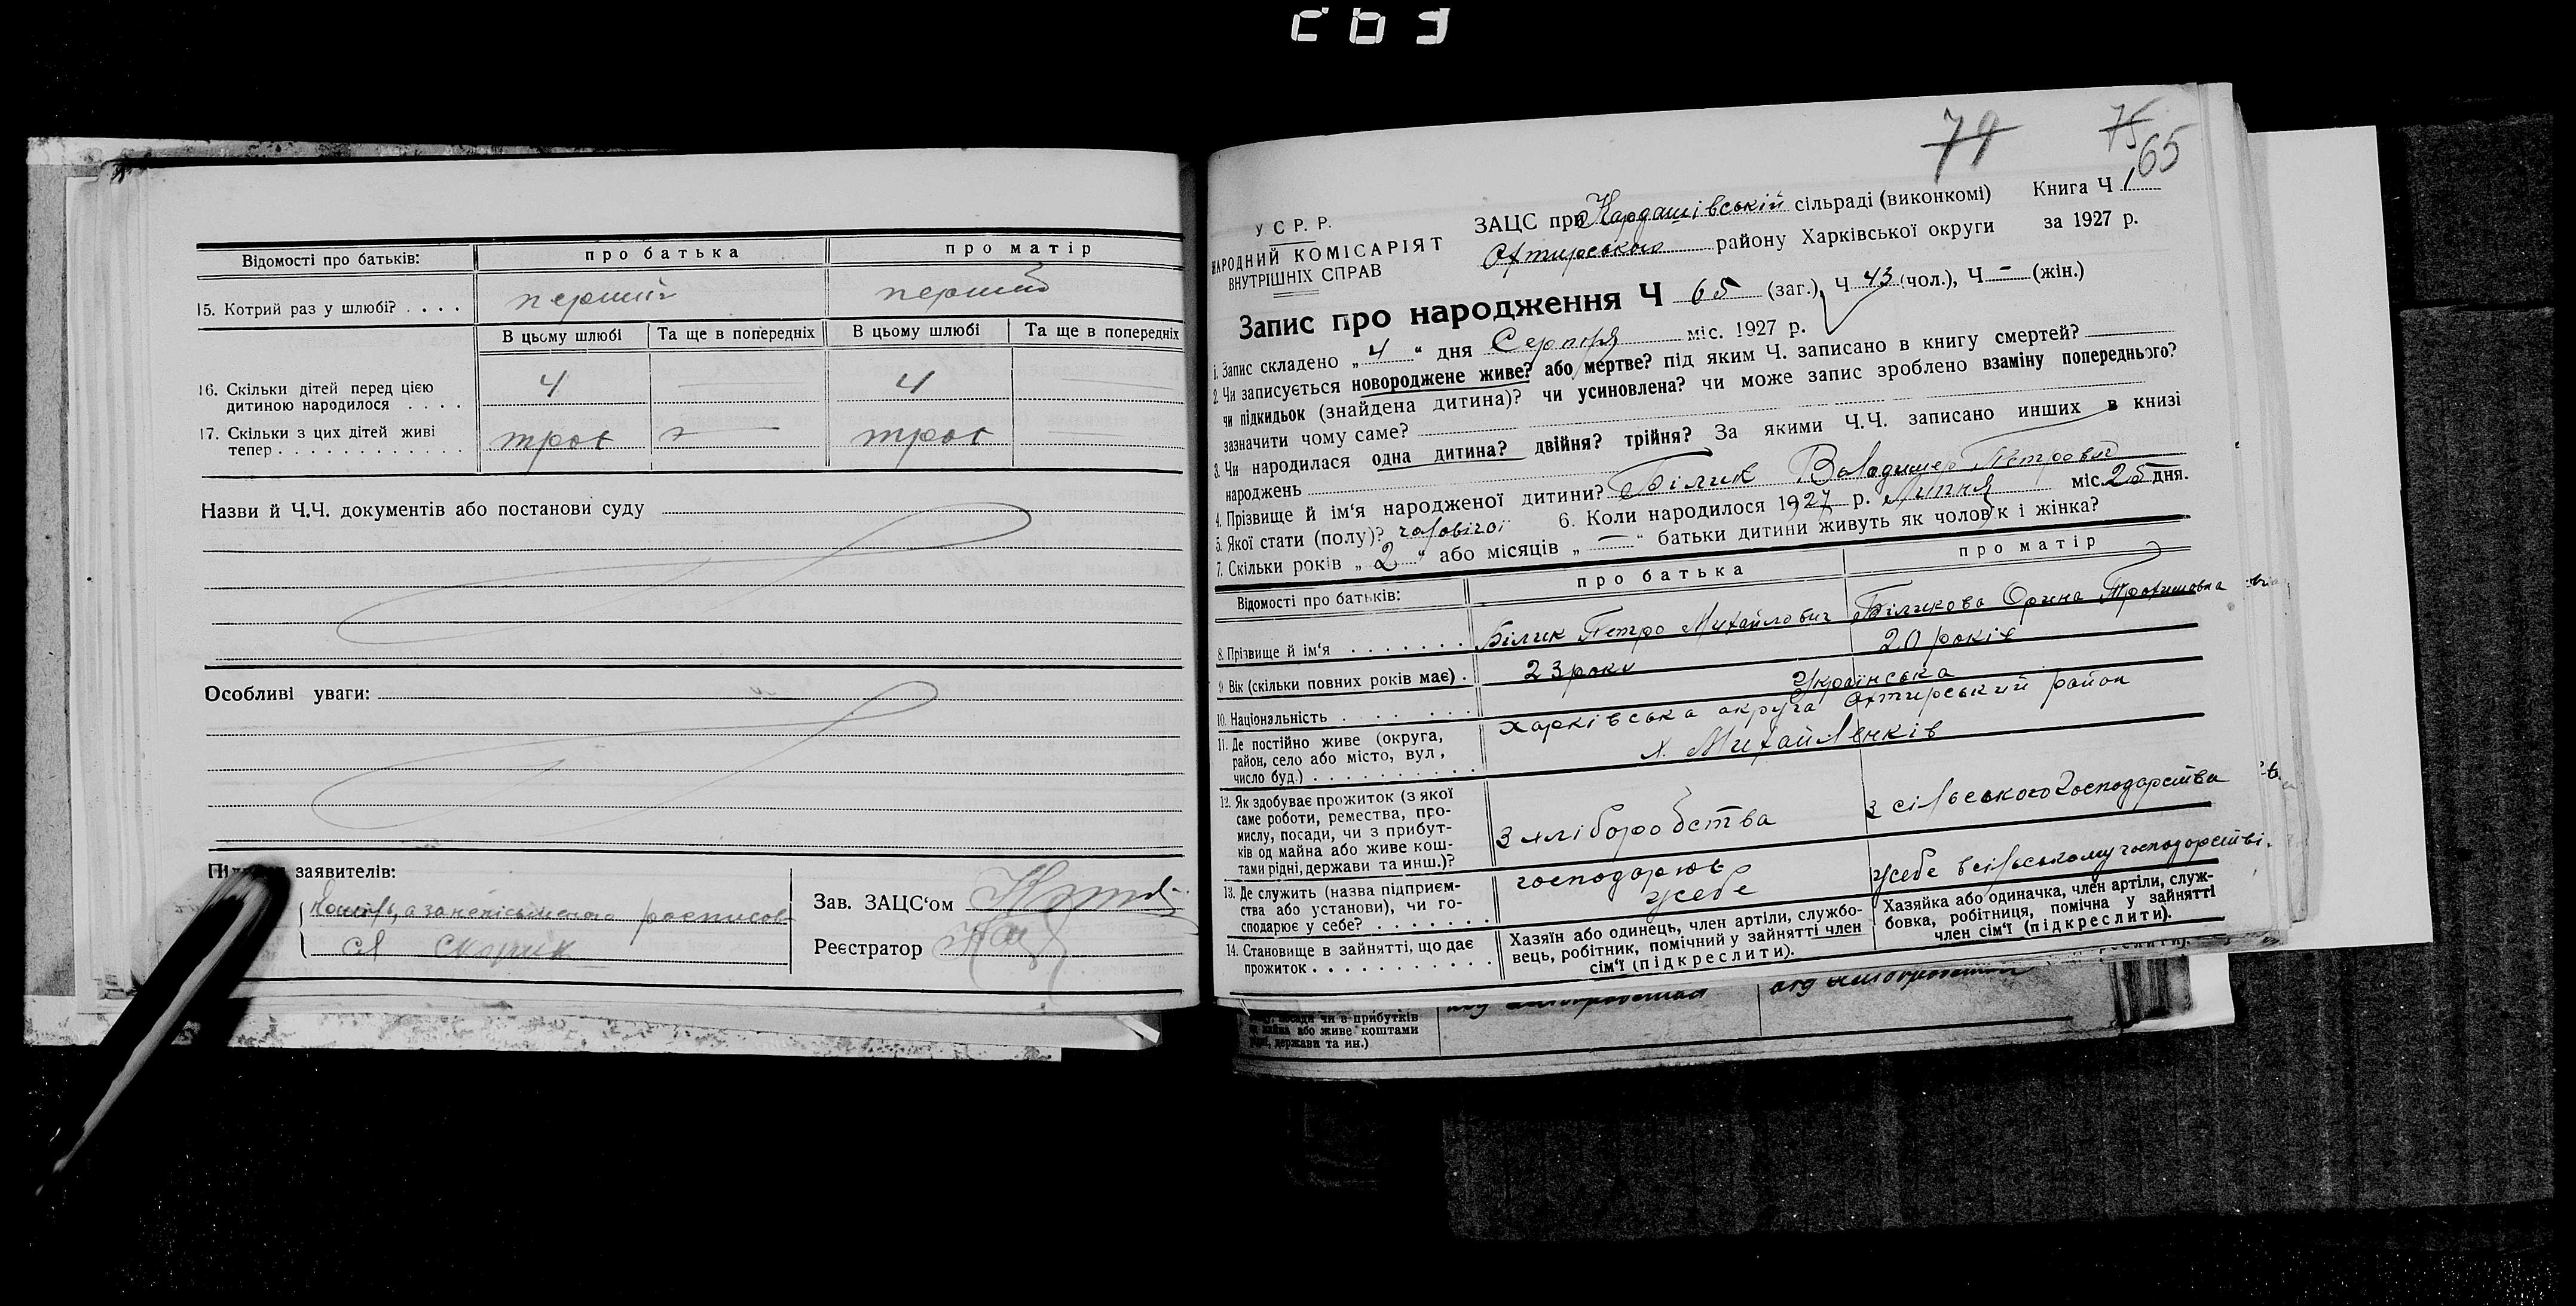 Відомості про батьків: про батька про матір
15. Котрий раз у шлюбі? . . . . перший перший
В цьому шлюбі Та ще в попередніх В цьому шлюбі Та ще в попередніх
16. Скільки дітей перед цією
дитиною народилося . . . . 4 — 4 —
17. Скільки з цих дітей живі
тепер . . . . . . . . . . . . . троє — троє —
Назви й Ч.Ч. документів або постанови суду
Особливі уваги:
заявителів:
росписов
ся Скорик
Зав. ЗАЦС‘ом
Реєстратор
79 75 65
У С Р. Р.
НАРОДНИЙ КОМІСАРІЯТ
ВНУТРІШНІХ СПРАВ
ЗАЦС при Кардашівській сільраді (виконкомі) Книга Ч 1
Охтирського району Харківської округи за 1927 р.
Запис про народження Ч 65 (заг.), Ч 43 (чол.), Ч — (жін.)
1. Запис складено „4“ дня Серпня міс. 1927 р.
2. Чи записується новороджене живе? або мертве? під яким Ч. записано в книгу смертей?
чи підкидьок (знайдена дитина)? чи усиновлена? чи може запис зроблено взаміну попереднього?
зазначити чому саме?
3. Чи народилася одна дитина? двійня? трійня? За якими Ч.Ч. записано инших в книзі
народжень
4. Прізвище й ім‘я народженої дитини? Білик Володимер Петрович
5. Якої стати (полу)? чоловічої 6. Коли народилося 1927 р. Липня міс. 25 дня.
7. Скільки років „2“ або місяців „—“ батьки дитини живуть як чоловік і жінка?
Відомості про батьків: про батька про матір
8. Прізвище й ім‘я . . . . . . . Білик Петро Михайлович Біликова Орина Трохимовна
9. Вік (скільки повних років має) . 23 роки 20 років
10. Національність . . . . . . . Українська
11. Де постійно живе (округа,
район, село або місто, вул,
число буд.) . . . . . . . . . .
Харківська округа Охтирський район
х. Михайленків
12. Як здобуває прожиток (з якої
саме роботи, ремества, про-
мислу, посади, чи з прибут-
ків од майна або живе кош-
тами рідні, держави та инш.)?
З хліборобства з сільського господарства
13. Де служить (назва підприєм-
ства або установи), чи го-
сподарює у себе? . . . . . . .
господарює
усебе
усебе в сільському господарстві.
14. Становище в зайнятті, що дає
прожиток . . . . . . . . . . .
Хазяїн або одинець, член артіли, службо-
вець, робітник, помічний у зайнятті член
сім‘ї (підкреслити).
Хазяйка або одиначка, член артіли, служ-
бовка, робітниця, помічна у зайнятті
член сім‘ї (підкреслити).
посади чи в прибутків
або живе коштами
держави та ин.)